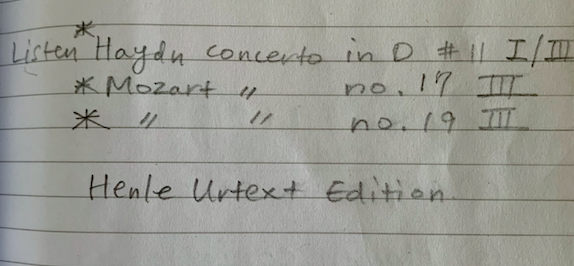 Listen *Haydn concerto in D # 11 I/III
* Mozart " no. 17 III
* " " no. 19 III
Henle Urtext Edition